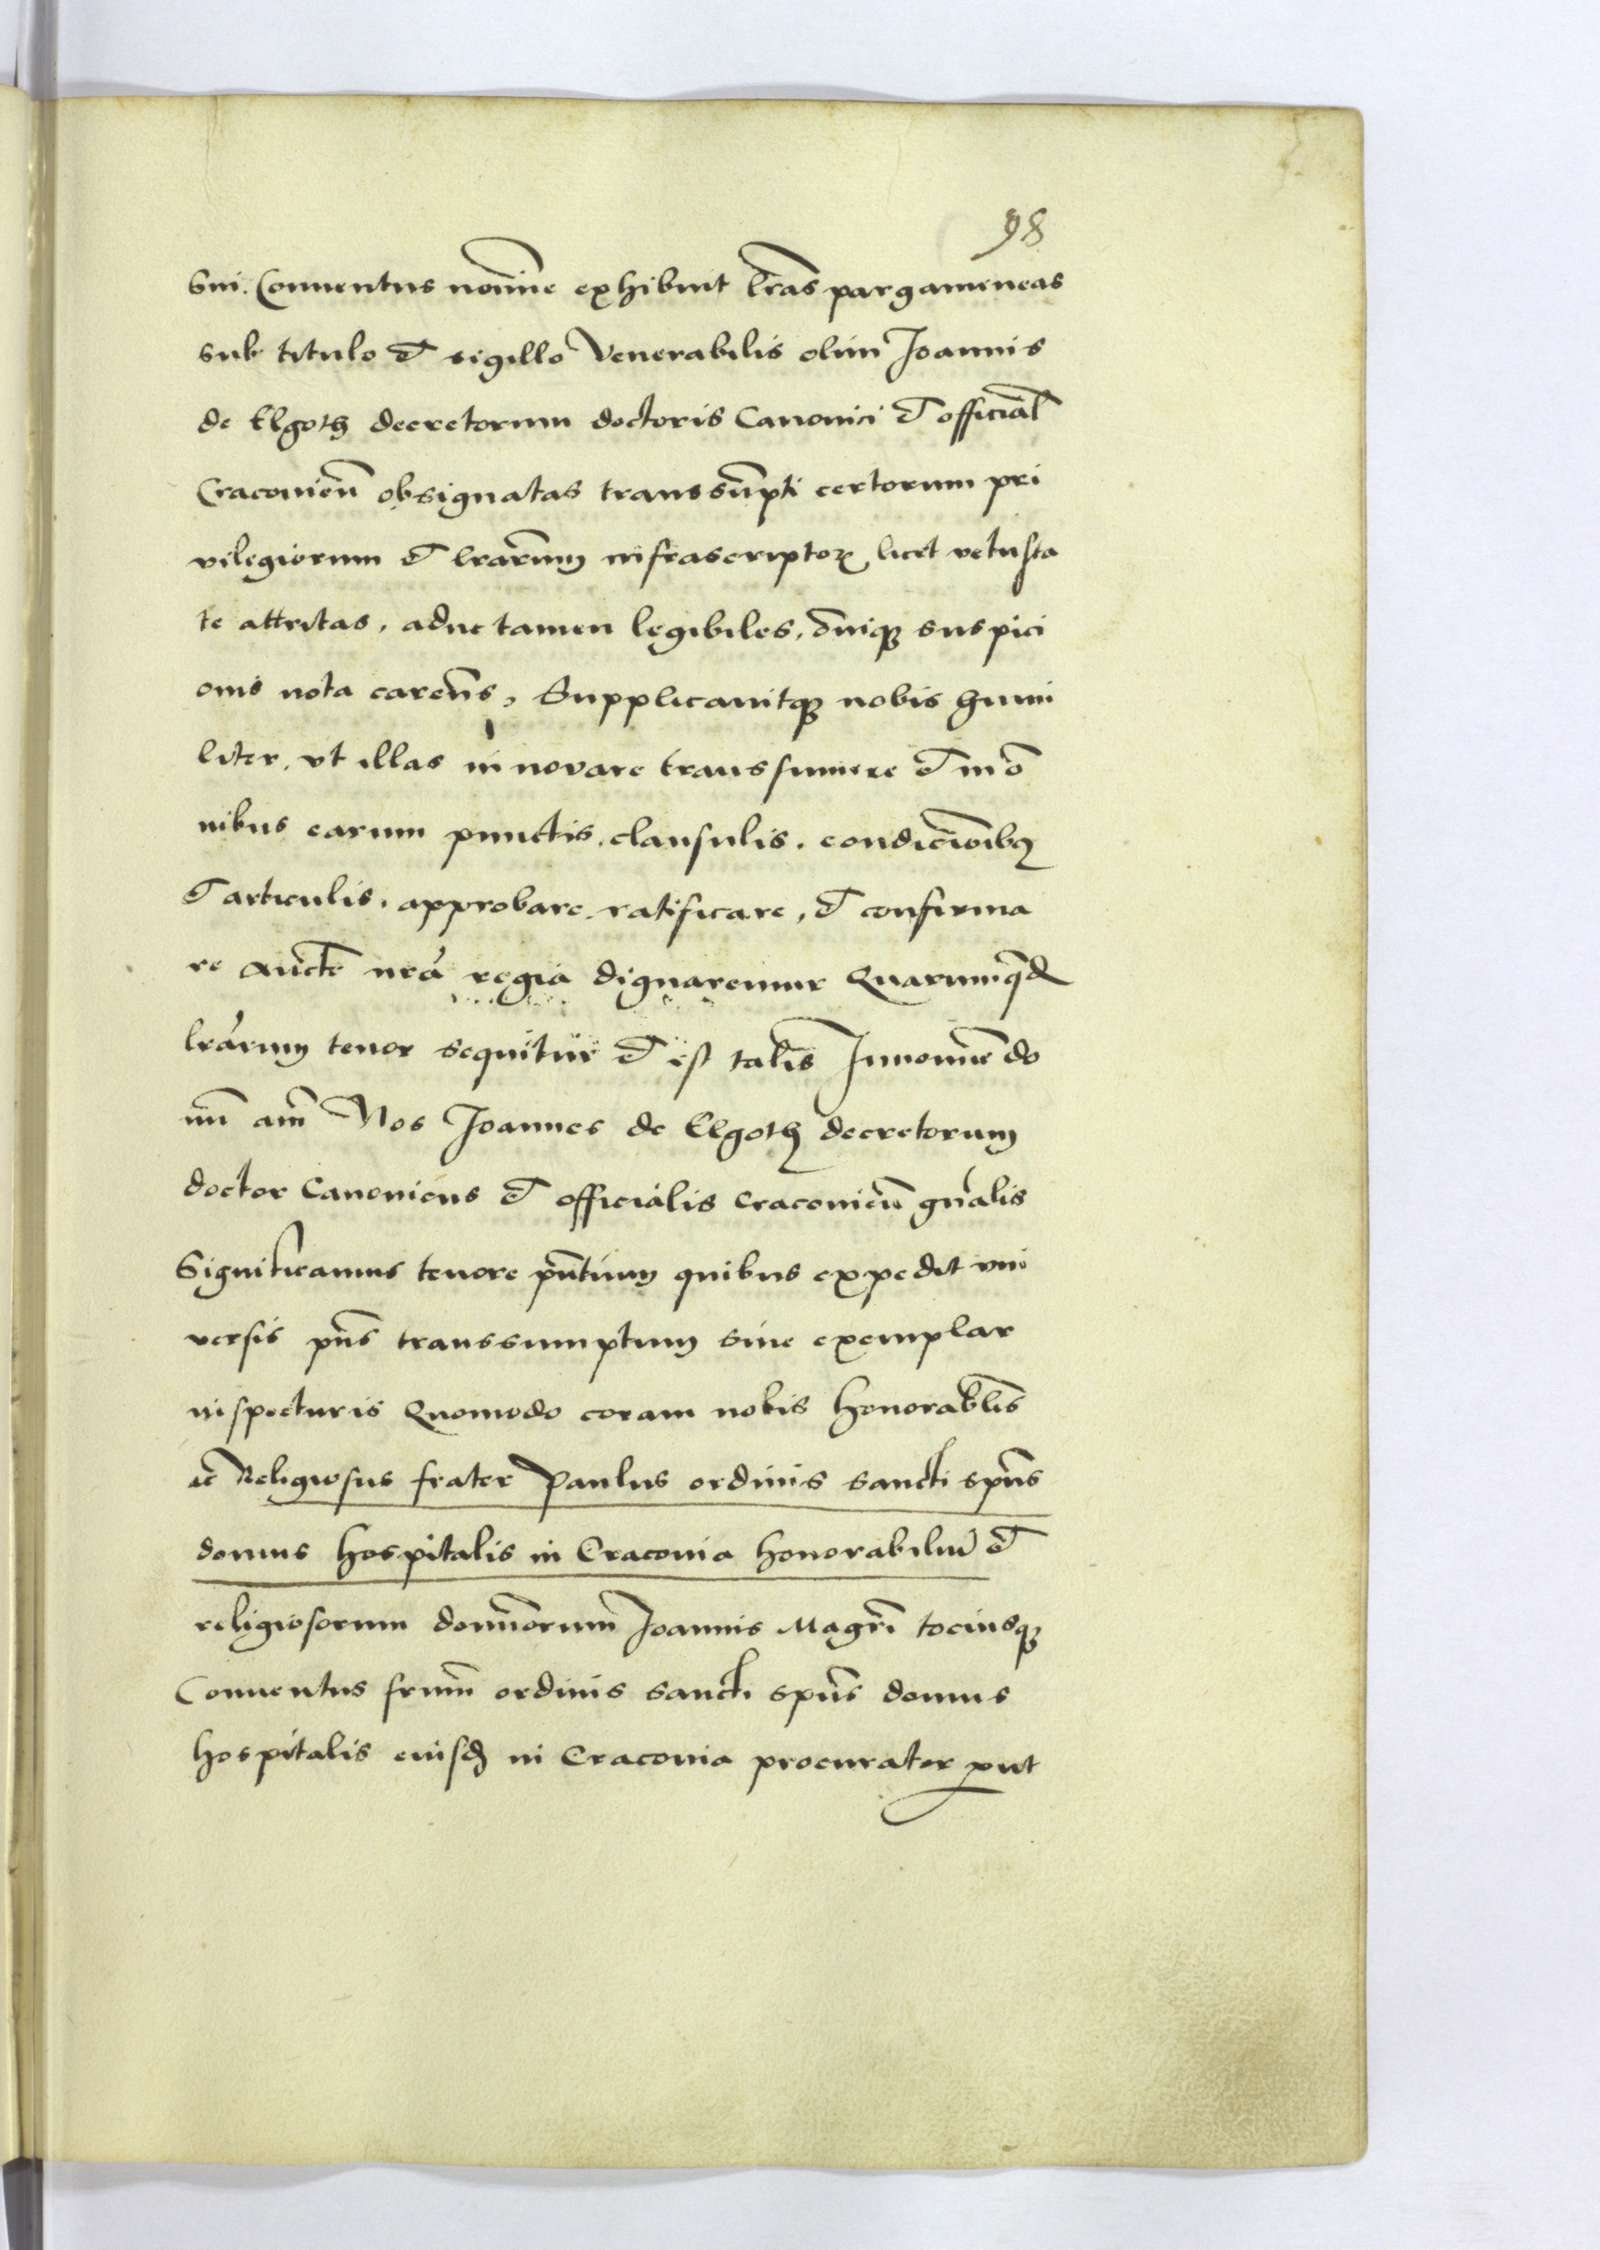 98
Sui. Conuentus nomine exhibuit lras pargameneas
sub titulo et sigillo Venerabilis olim Joannis
de Elgoth decretorum doctoris Canonici et official
Craconien obsignatas transsumpti certorum pri
vilegiorum et lrarum infrascriptor, licet vetusta
te attritas, aduc tamen legibiles, omniq suspici
onis nota carens, Supplicauitq nobis humi
liter, vt illas innovare transsumere et in o
nibus earum punctis, clausulis, condicionibq
et articulis, approbare, ratificare, et confirma
re aucte nra regia dignaremur Quarumqd
lrarum tenor sequitur et est talis In nomine do
mi am Nos Joannes de Elgoth decretorum
doctor Canonicus et officialis Craconien gnralis
Significamus tenore pntium quibus expedit vni
versis pns transsumptum siue exemplar
inspecturis Quomodo coram nobis Honorablis
ac Religiosus frater Paulus ordinis sancti spus
domus hospitalis in Cracovia honorabilium et
religiosorum dominorum Joannis Magri tociusq
Conuentus frum ordinis sancti spus domus
hospitalis eiusd in Cracovia procurator put